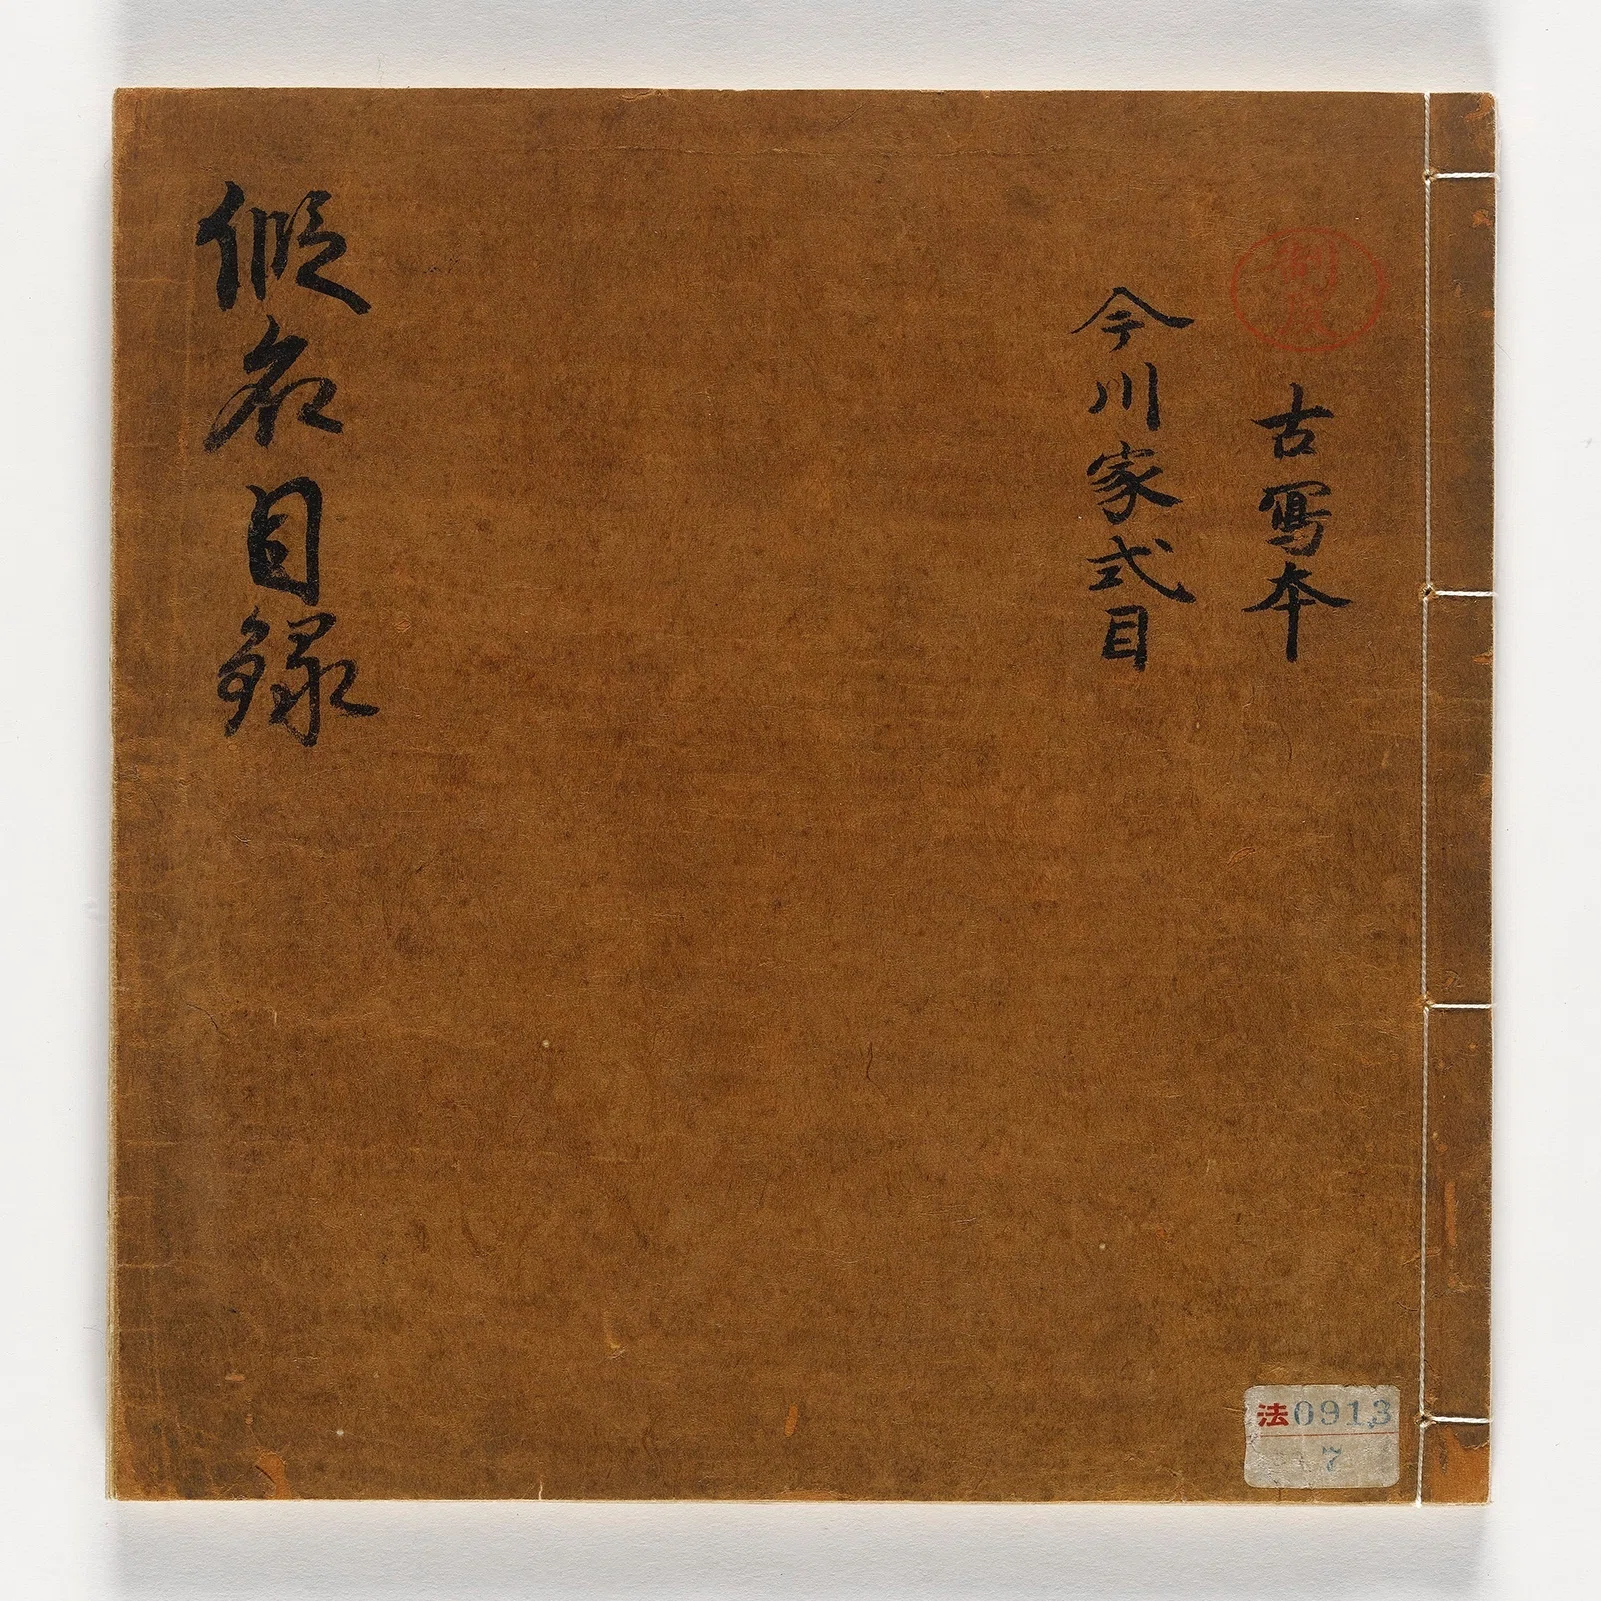 制度
古寫本
今川家式目
假名目録
法0913
7